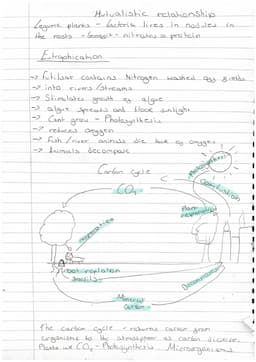 Mutualistic relationship
Legume plants - bacteria lives in nodules in
the roots - nitrates = protein
Eutrophication
→ Fertiliser contains Nitrogen washed off fields
→ into rivers/streams
→ Stimulates growth of algae
→ algae spreads and block sunlight
→ Cant grow - Photosynthesis
→ reduces oxygen
→ Fish/river animals die lack of oxygen
→ Animals decompose
Carbon Cycle
Photosynthesis
CO₂
Combustion
Plant respiration
respiration
fossils
Decomposition
Carbon
The carbon cycle - returns carbon from
organisms to the atmosphere as carbon dioxide.
Plants use CO₂ - Photosynthesis - Microorganisms.